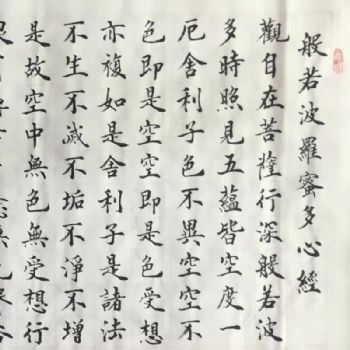 般若波羅蜜多心經
觀自在菩薩行深般若波
多時照見五蘊皆空度一
厄舍利子色不異空空不
色即是空空即是色受想
亦複如是舍利子是諸法
不生不滅不垢不淨不增
是故空中無色無受想行